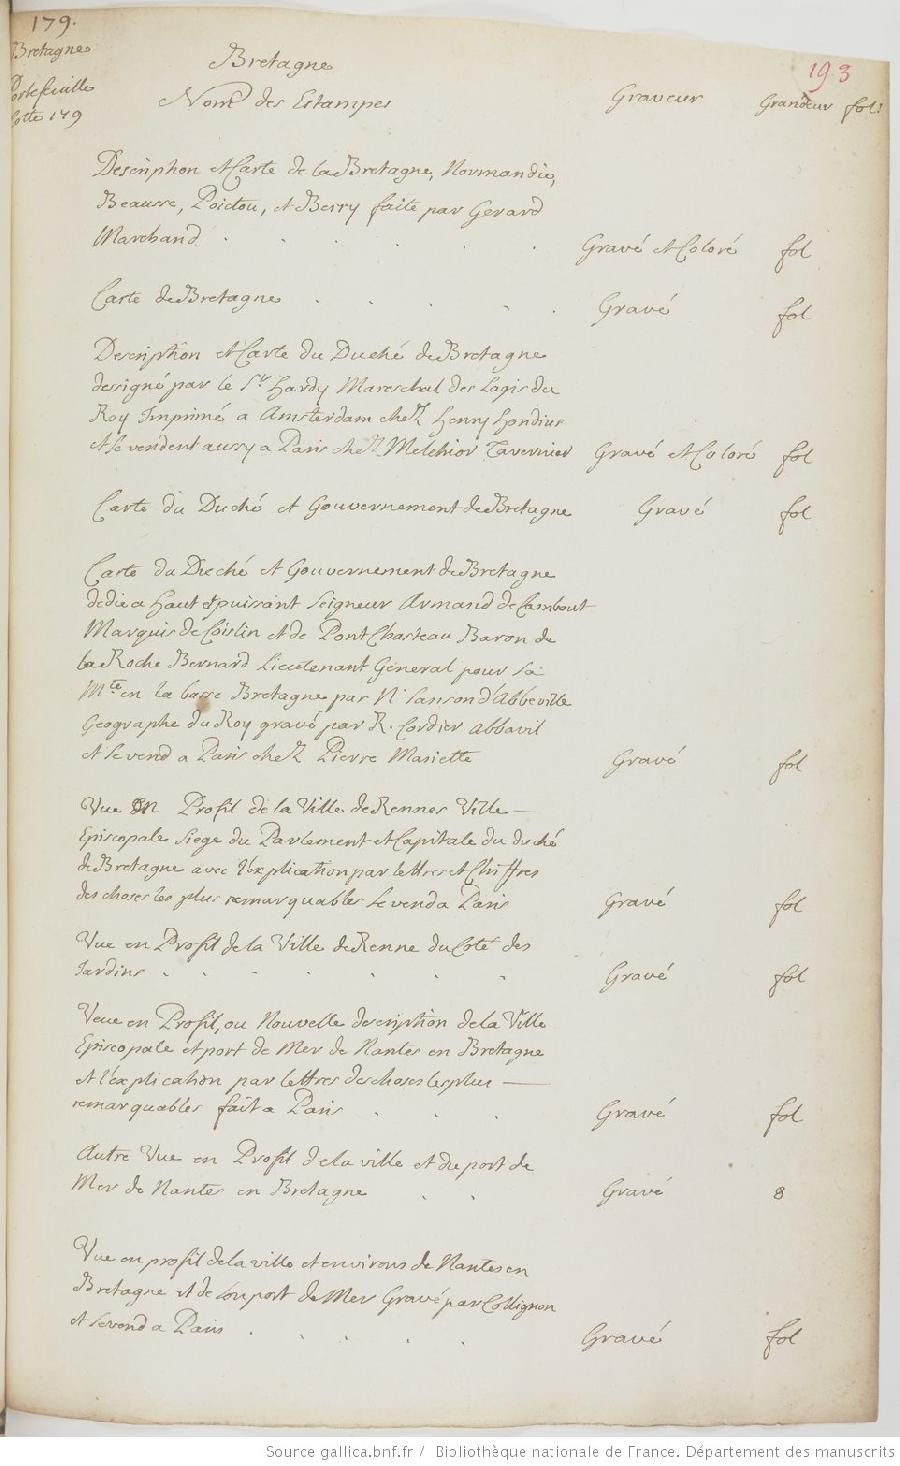 179.
Bretagne
Portefeuille
Cotte 179
193
Bretagne
Noms des Estampes Graveur Grandeur fol!
Description et Carte de la Bretagne, Normandie,
Beausse, Poictou, et Berry faite par Gerard
Marchand . . . . . . Gravé et Coloré fol
Carte de Bretagne . . . . . Gravé fol
Description et Carte du Duché de Bretagne
dessigné par le Sr. Hardy Mareschal des Logis du
Roy Imprimé a Amsterdam chez Henry Hondius
et se vendent aussy a Paris chez Melchior Tavernier Gravé et Coloré fol
Carte du Duché et Gouvernement de Bretagne Gravé fol
Carte du Duché et Gouvernement de Bretagne
dedie a haut et puissant Seigneur Armand de Cambout
Marquis de Coislin et de Pont Chasteau Baron de
la Roche Bernard Lieutenant General pour Sa
Mté en la basse Bretagne par N Sanson d'Abbeville
Geographe du Roy gravé par R. Cordier abbavil
et se vend a Paris chez Pierre Mariette Gravé fol
Vue en Profil de la Ville de Rennes Ville —
Episcopale Siege du Parlement et Capitale du duché
de Bretagne avec l'explication par lettres et Chiffres
des choses les plus remarquables se vend a Paris Gravé fol
Vue en Profil de la Ville de Renne du Coté des
Jardins . . . . . . Gravé fol
Veue en Profil, ou Nouvelle description de la Ville
Episcopale et port de Mer de Nantes en Bretagne
et l'explication par lettres des choses les plus —
remarquables fait a Paris . . . Gravé fol
Autre Vue en Profil de la ville et du port de
Mer de Nantes en Bretagne . . Gravé 8
Vue en profil de la ville et environs de Nantes en
Bretagne et de son port de Mer Gravé par Collignon
et se vend a Paris . . . . . Gravé fol
Source gallica.bnf.fr / Bibliothèque nationale de France. Département des manuscrits